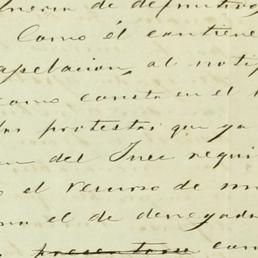 de definitivo,
Como él contiene
apelacion, al noti
como consta en el
las protestas que ya
del Juez requi
el recurso de
el de denegada
presentarse com